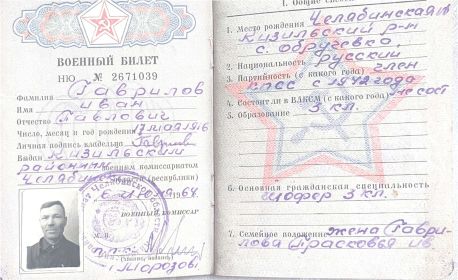 ВОЕННЫЙ БИЛЕТ
НЮ № 2671039
Фамилия Гаврилов
Имя Иван
Отчество Павлович
Число, месяц и год рождения 17 мая 1916
Личная подпись владельца
Выдан Кизильским
районным военным комиссариатом
Челябинской (республики)
6 1964
ВОЕННЫЙ КОМИССАР
Морозов
1. Место рождения Челябинская
Кизильский р-н
с. Обручевка
2. Национальность Русский
3. Партийность (с какого года) член
КПСС с 1942 года
4. Состоит ли в ВЛКСМ (с какого года) не сост
5. Образование 3 кл.
6. Основная гражданская специальность
шофер 3 кл.
7. Семейное положение жена Гаври-
лова Прасковья